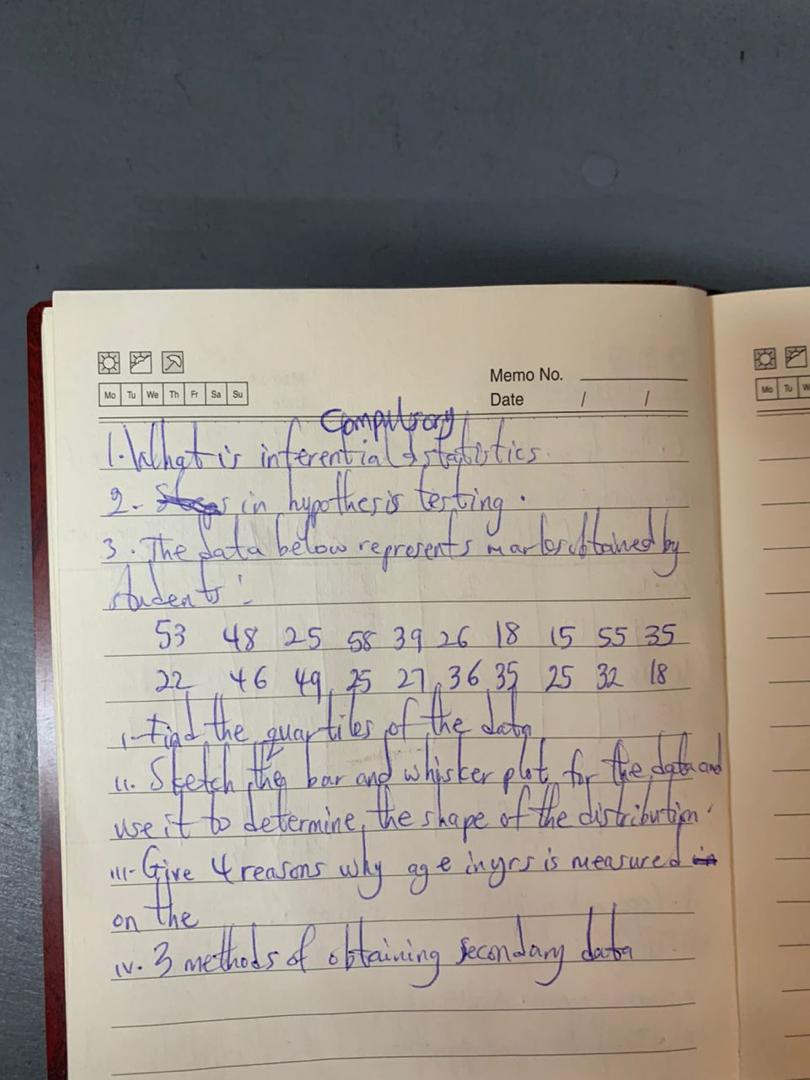 Memo No.
Mo Tu We Th Fr Sa Su
Date / /
Compulsory
1. What is inferential statistics.
2- Steps in hypothesis testing.
3. The data below represents marks obtained by
students:
53 48 25 58 39 26 18 15 55 35
22 46 49 25 27 36 35 25 32 18
i- Find the quartiles of the data
ii. Sketch the bar and whisker plot for the data and
use it to determine the shape of the distribution.
iii- Give 4 reasons why age in yrs is measured in
on the
iv. 3 methods of obtaining secondary data
Mo Tu W